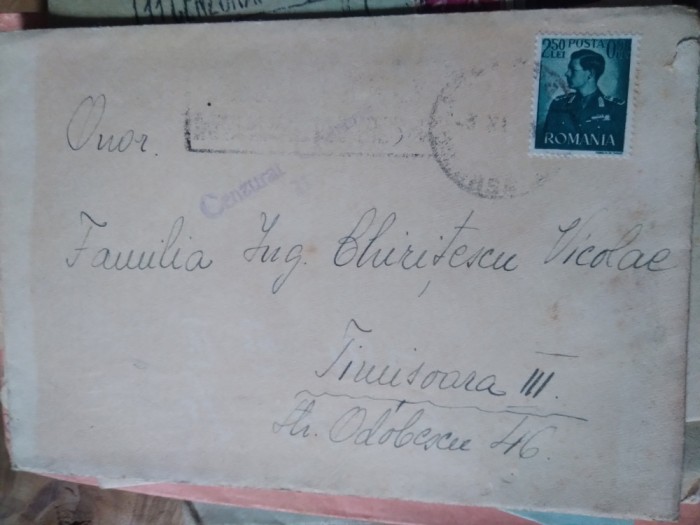 CENZURAT
2,50 POSTA
LEI
ROMANIA
Cenzurat
Onor.
Familia Ing. Chirițescu Nicolae
Timisoara III.
Str. Odobescu 46.